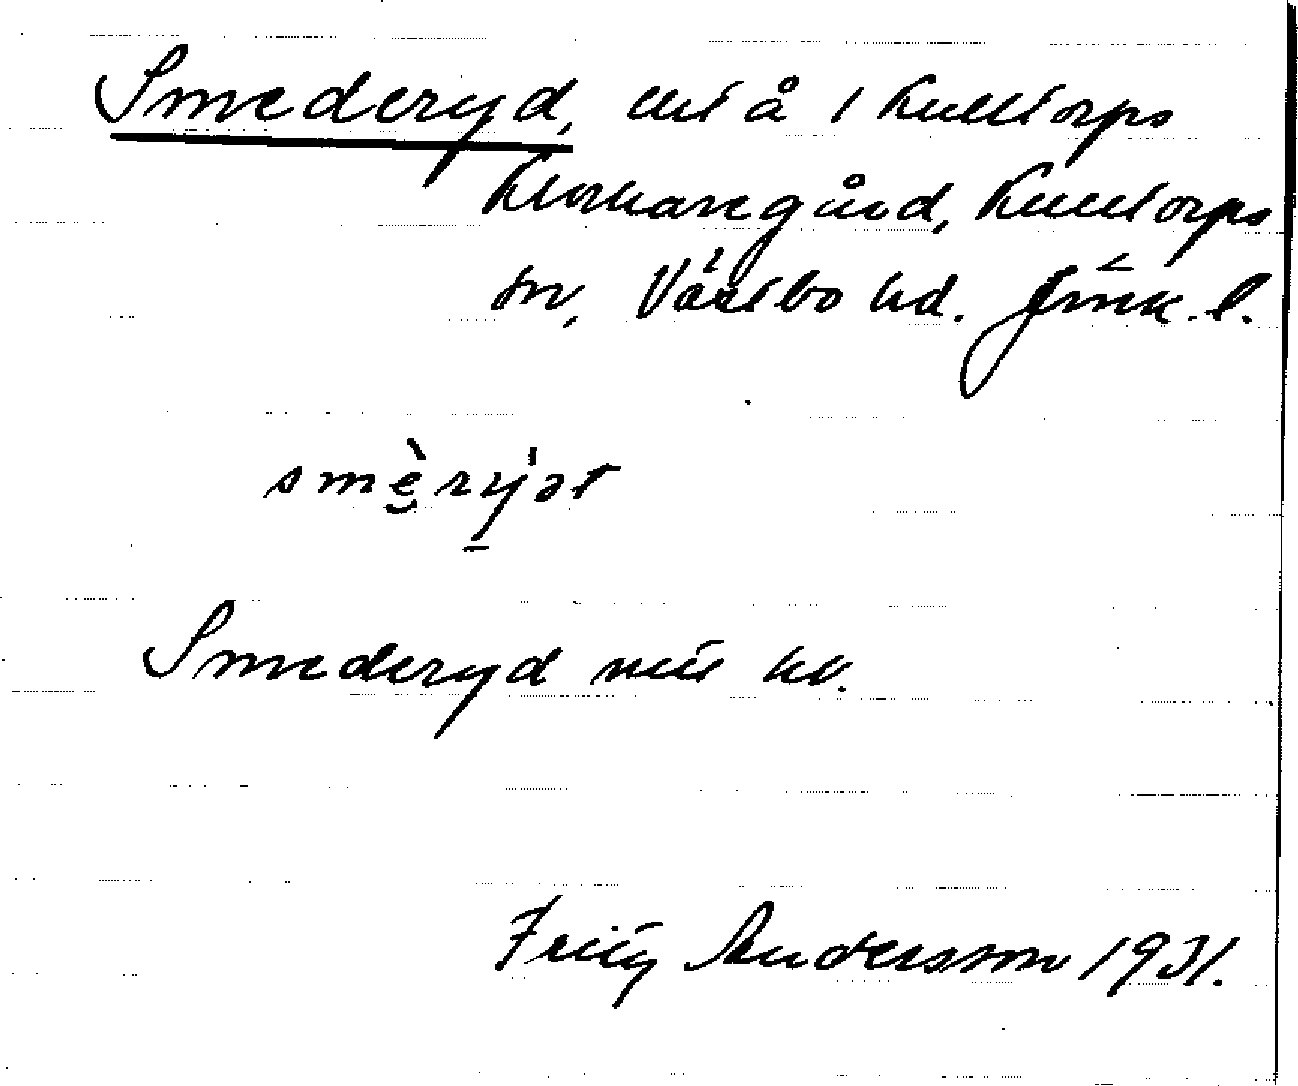 Smederyd, utå i Kulltorps
Klockaregård, Kulltorps
sn, Västbo hd. Jönk. l.
smèrý̱ət
Smederyd mtl kv.
Fritz Andersson 1931.